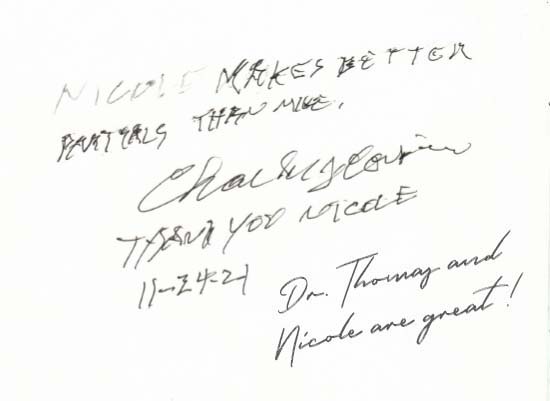 NICOLE MAKES BETTER
PARTIALS THAN
Charles
THANK YOU NICOLE
11-24-21
Dr. Thomas and
Nicole are great!